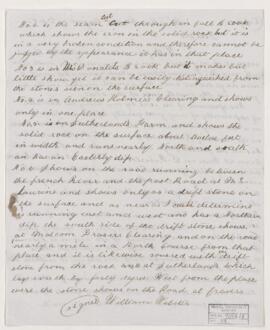 No 2 is the seam cut through in full to rock
which shows the iron in the solid rock but it is
in a very broken condition and therefore cannot be
judged by the appearance it has in that place
No 3 is on McDonalds Brook but it makes but
little show yet it can be easily distinguished from
the stones seen on the surface
No 4 is on Andrew Holmes Clearing and shows
only in one place
No 5 is on Sutherlands Farm and shows the
solid rock on the surface about twelve feet
in width and runs nearly North and South
an has an Easterly dip
No 6 Shows on the road running between
the French River and the post Road at Mr
and shows only as a drift stone on
the surface and as near as I could determine
is running east and west and has a Northern
dip the south side of the drift stone shows
at Malcom Frasers clearing and on the road
nearly a mile in a North Course from that
place and it is likewise covered with drift
stone from the rock seen at Sutherlands which
lays north by forty degrees West from the place
were the stone shows on the Road at Frasers
Signed William Webster